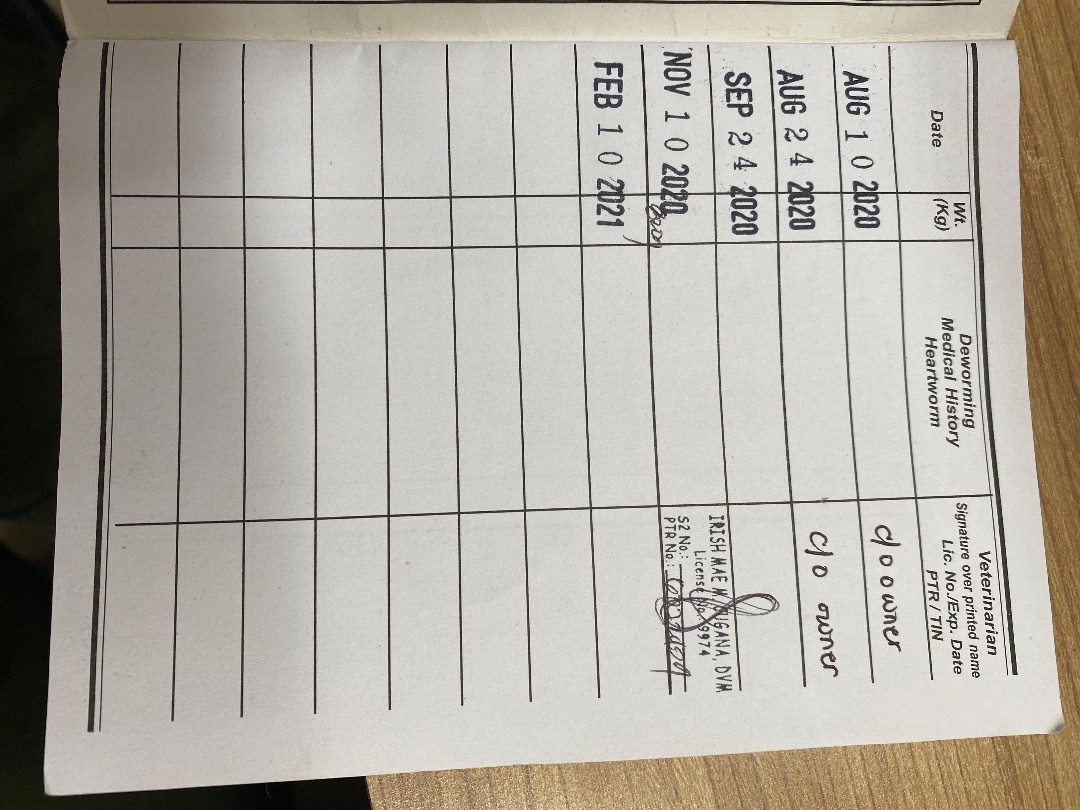 Date
Wt.
(Kg)
Deworming
Medical History
Heartworm
Veterinarian
Signature over printed name
Lic. No./Exp. Date
PTR / TIN
AUG 10 2020
c/o owner
AUG 24 2020
c/o owner
SEP 24 2020
IRISH MAE M. UGANA, DVM
License No. 9974
S2 No.:
PTR No.:
NOV 10 2020
FEB 10 2021